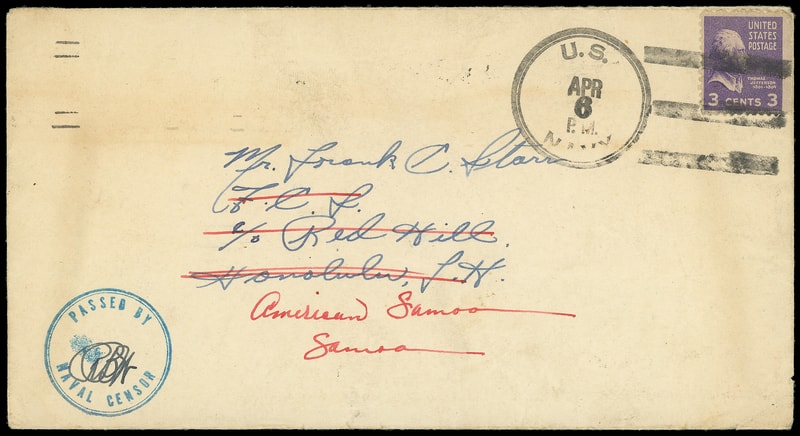 U.S.
APR
6
P.M.
NAVY
UNITED
STATES
POSTAGE
THOMAS
JEFFERSON
1801-1809
3 CENTS 3
Mr. Frank C. Starr
F. C. S.
c/o Red Hill.
Honolulu, T.H.
American Samoa
Samoa
PASSED BY
NAVAL CENSOR